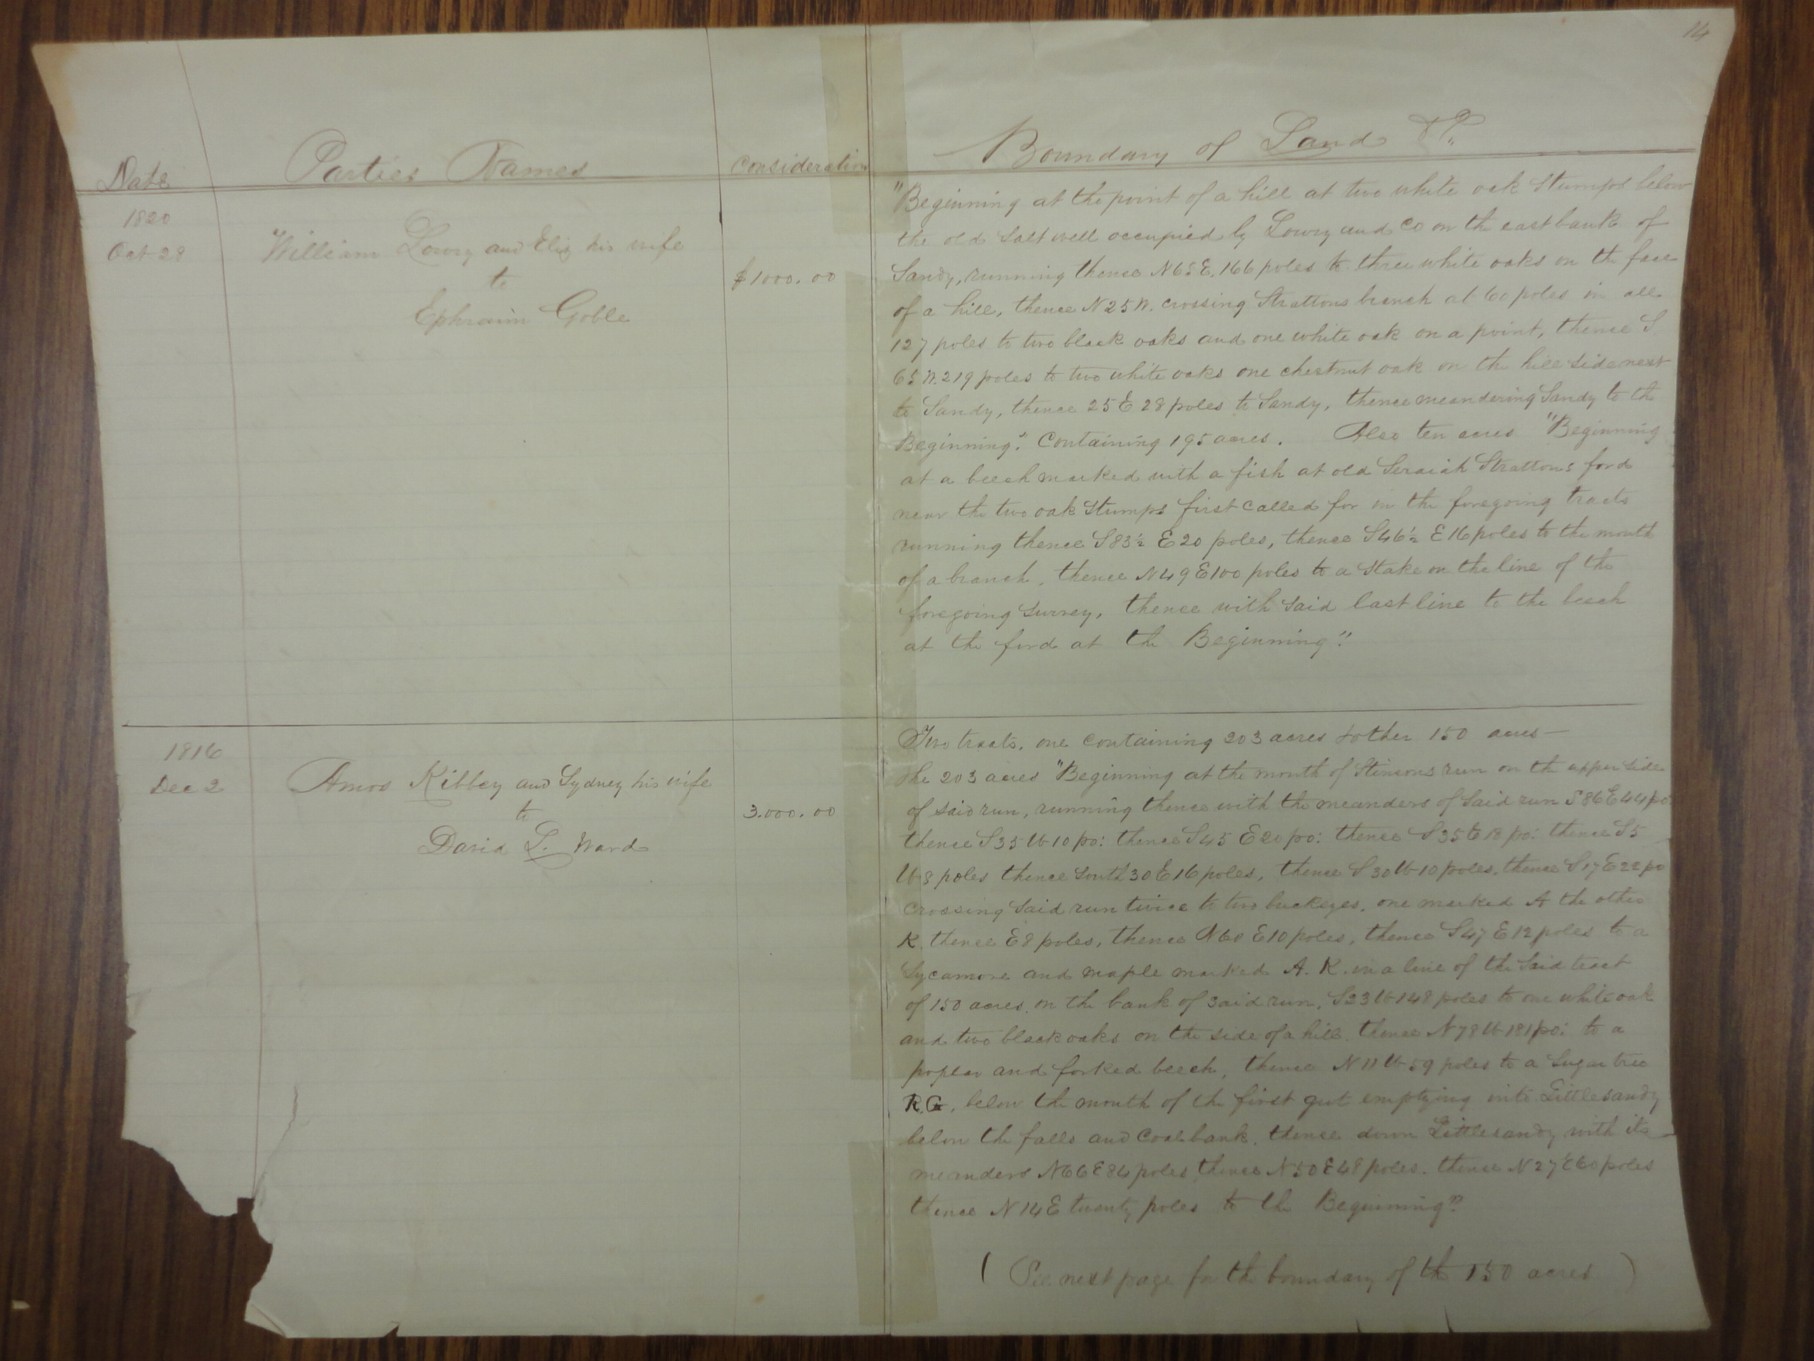 14
Date
Parties Names
Consideration
Boundary of Land &c.
1820
Oct 28
William Lowry and Eliz his wife
to
Ephraim Goble
$1000.00
"Beginning at the point of a hill at two white oak stumps below
the old Salt well occupied by Lowry and Co on the east bank of
Sandy, running thence N65E. 166 poles to three white oaks on the face
of a hill, thence N25W. crossing Strattons branch at 60 poles in all
127 poles to two black oaks and one white oak on a point, thence S
65W. 219 poles to two white oaks one chestnut oak on the hill side next
to Sandy, thence 25 E 28 poles to Sandy, thence meandering Sandy to the
Beginning". Containing 195 acres. Also ten acres "Beginning
at a beech marked with a fish at old Seraiah Strattons ford
near the two oak Stumps first called for in the foregoing tracts
running thence S83½ E20 poles, thence S46½ E16 poles to the mouth
of a branch, thence N49E100 poles to a Stake on the line of the
foregoing survey, thence with Said last line to the beech
at the ford at the Beginning".
1816
Dec 2
Amos Kibbey and Sydney his wife
to
David L. Ward
3.000.00
Two tracts, one containing 203 acres & other 150 acres—
The 203 acres "Beginning at the mouth of Stinsons run on the upper side
of Said run, running thence with the meanders of Said run S86E44po
thence S35W10po: thence S45 E20po: thence S35E18po: thence S5
W8 poles thence South 30E16 poles, thence S30W10 poles, thence S17E22po
crossing Said run twice to two buckeyes, one marked A the other
K. thence E8 poles, thence N60 E10 poles, thence S47 E12 poles to a
Sycamore and maple marked A. K. in a line of the Said tract
of 150 acres, on the bank of Said run, S23W148 poles to one white oak
and two black oaks on the side of a hill, thence N78W181po: to a
poplar and forked beech, thence N11W59 poles to a Sugar tree
R.G. below the mouth of the first gut emptying into Little sandy
below the falls and Coal bank, thence down Little sandy with its
meanders N66E84 poles, thence N50E48 poles. thence N27E60 poles
thence N14E twenty poles to the Beginning"
( See next page for the boundary of the 150 acres )